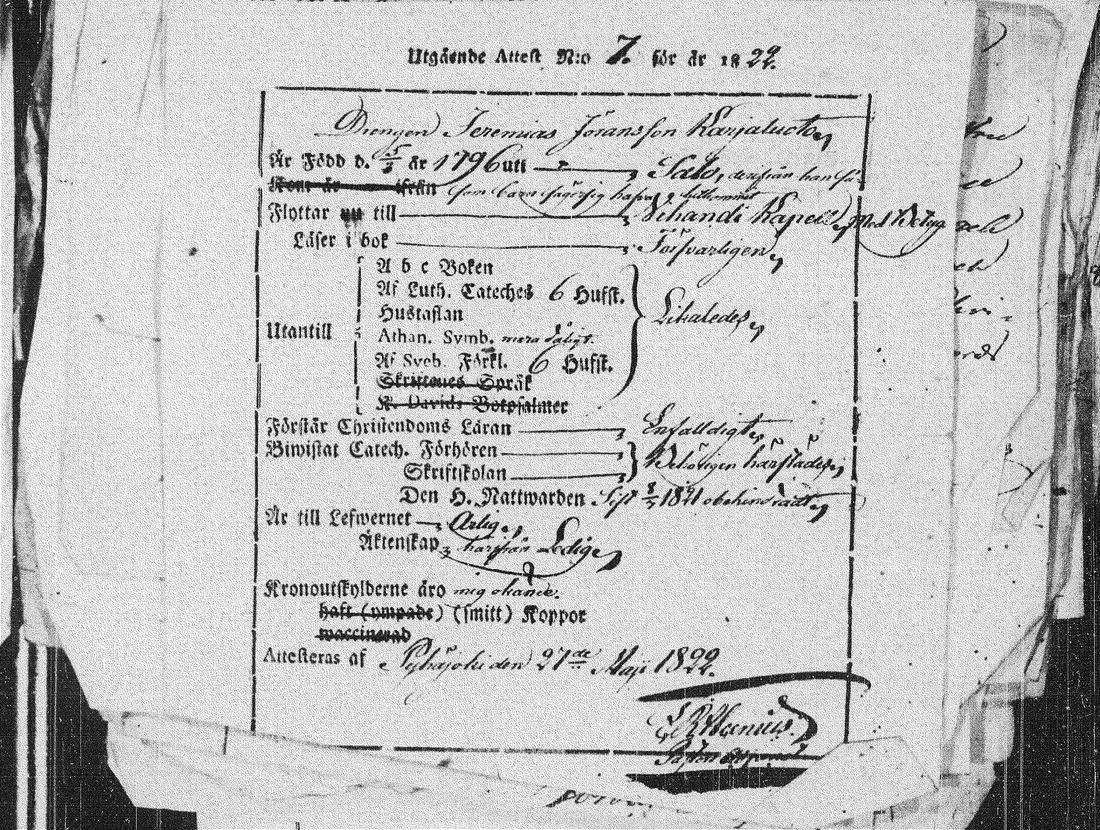 Utgående Attest N:o 7. för år 1822.
Drengen Jeremias Göransson Karjaluoto,
Är Född d. 5/3 år 1796 uti Salo, derifrån han så
Kom år ifrån som barn hafva hitkommit
Flyttar nu till Vihandi Kapell, med Betyg
Läser i bok Försvarligen,
A b c Boken
Af Luth. Cateches 6 Hufst.
Hustaflan
Likaledes,
Utantill
Athan. Symb. mera dåligt.
Af Sveb. Förkl. 6 Hufst.
Skriftenes Språk
K. Davids Botpsalmer
Förstår Christendoms Läran Enfalldigt,
Biwistat Catech. Förhören
Behörigen härstädes,
Skriftskolan
Den H. Nattwarden Sist 1821 obehindradt,
Är till Lefwernet Ärlig,
Äktenskap härifrån Ledig,
Kronoutskylderne äro mig okände.
haft (ympade) (smitt) Koppor
waccinerad
Attesteras af Pyhäjoki den 27de Maji 1822.